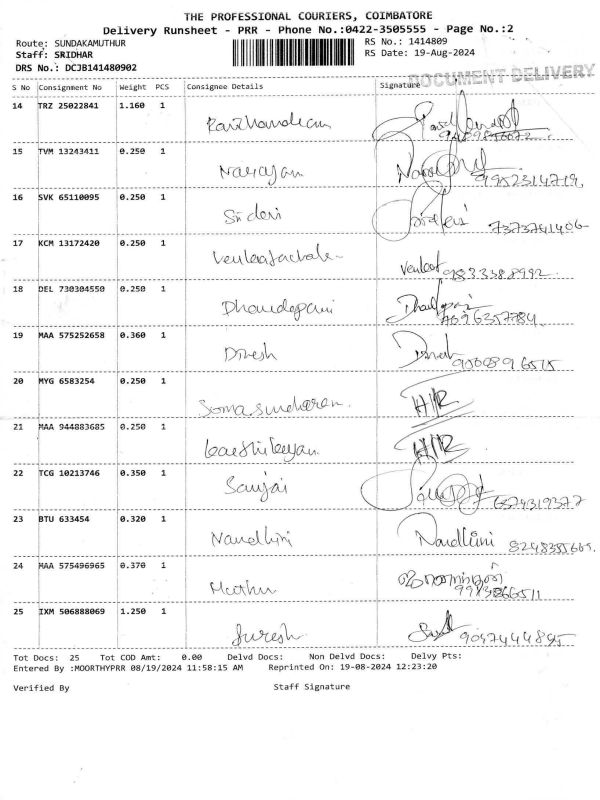 THE PROFESSIONAL COURIERS, COIMBATORE
Delivery Runsheet - PRR - Phone No.:0422-3505555 - Page No.:2
Route: SUNDAKAMUTHUR RS No.: 1414809
Staff: SRIDHAR RS Date: 19-Aug-2024
DRS No.: DCJB141480902
DOCUMENT DELIVERY
S No Consignment No Weight PCS Consignee Details Signature
14 TRZ 25022841 1.160 1
15 TVM 13243411 0.250 1 Narayan 9952314719
16 SVK 65110095 0.250 1 Sri devi 7373741406
17 KCM 13172420 0.250 1 Venkat
18 DEL 730304550 0.250 1 Dhandapani 7696357784
19 MAA 575252658 0.360 1 Dinesh
20 MYG 6583254 0.250 1 Somasundaram.
21 MAA 944883685 0.250 1
22 TCG 10213746 0.350 1 Sanjai 6374319377
23 BTU 633454 0.320 1 Nandhini Nandhini
24 MAA 575496965 0.370 1 Muthu
25 IXM 506888069 1.250 1 Suresh 9047444895
Tot Docs: 25 Tot COD Amt: 0.00 Delvd Docs: Non Delvd Docs: Delvy Pts:
Entered By :MOORTHYPRR 08/19/2024 11:58:15 AM Reprinted On: 19-08-2024 12:23:20
Verified By Staff Signature